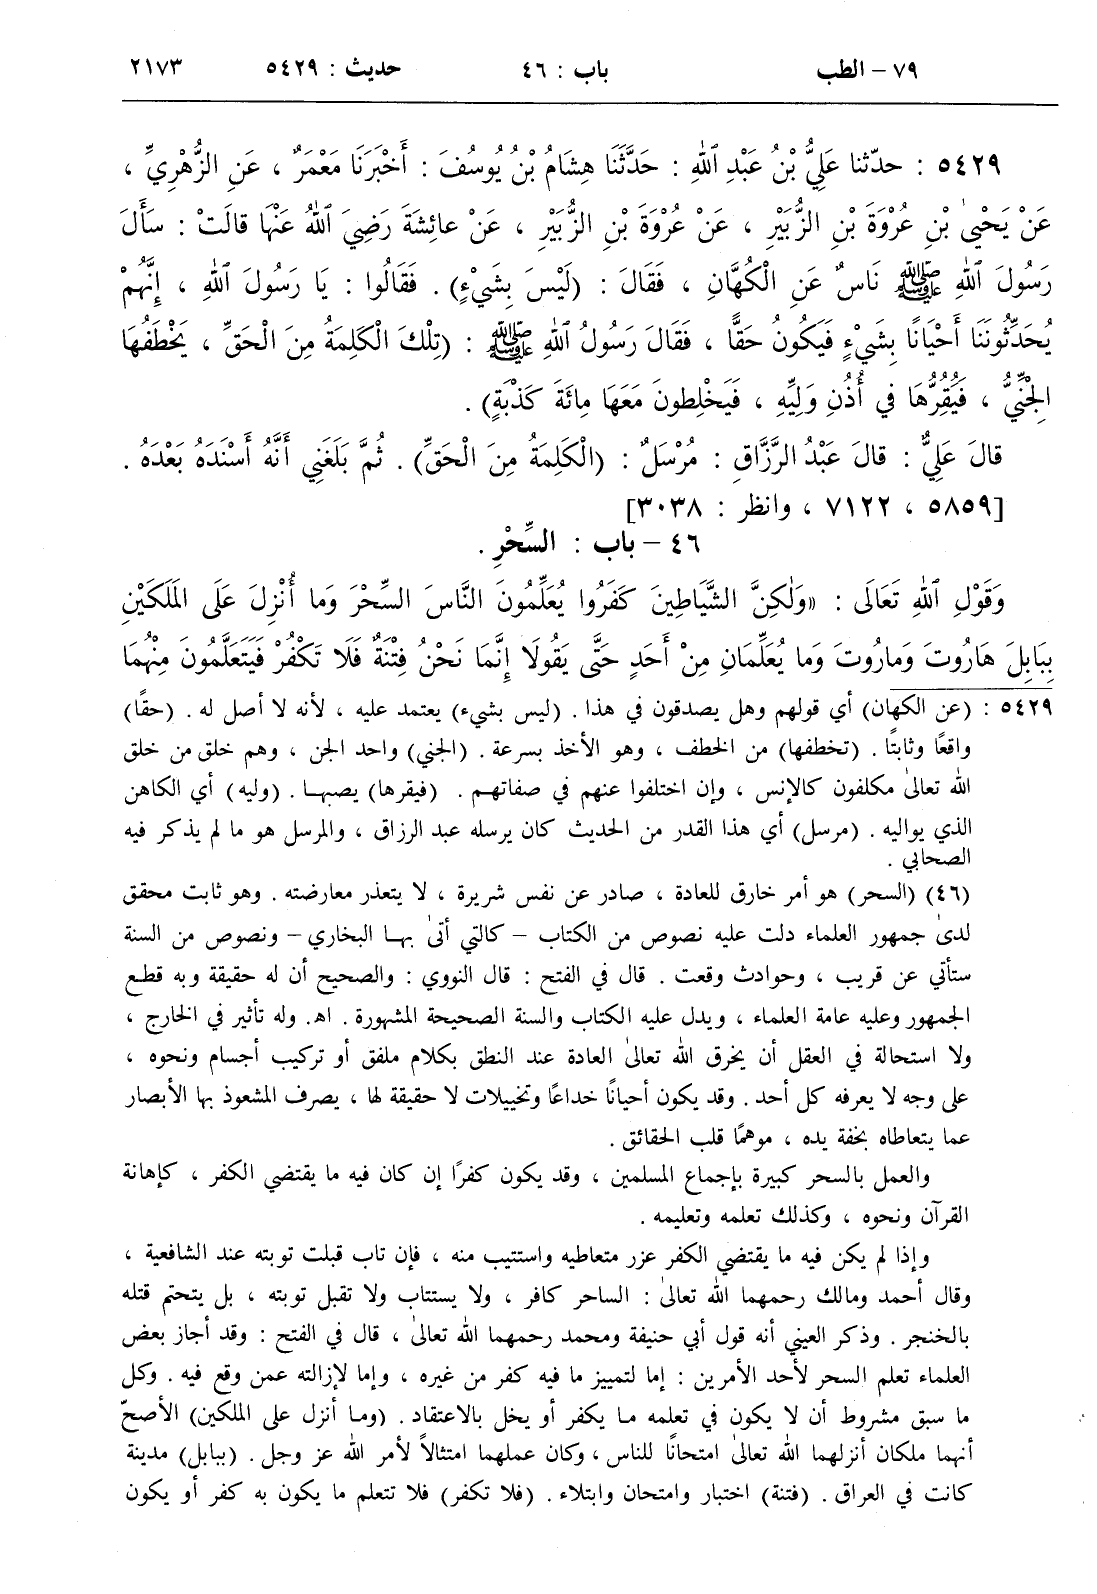 ٧٩ – الطب باب : ٤٦ حديث : ٥٤٢٩ ٢١٧٣
٥٤٢٩ : حدّثنا عَلِيُّ بْنُ عَبْدِ ٱللهِ : حَدَّثَنَا هِشَامُ بْنُ يُوسُفَ : أَخْبَرَنَا مَعْمَرٌ ، عَنِ الزُّهْرِيِّ ،
عَنْ يَحْيىٰ بْنِ عُرْوَةَ بْنِ الزُّبَيْرِ ، عَنْ عُرْوَةَ بْنِ الزُّبَيْرِ ، عَنْ عائِشَةَ رَضِيَ ٱللهُ عَنْهَا قالَتْ : سَأَلَ
رَسُولَ ٱللهِ ﷺ نَاسٌ عَنِ الْكُهَّانِ ، فَقَالَ : (لَيْسَ بِشَيْءٍ) . فَقَالُوا : يَا رَسُولَ ٱللهِ ، إِنَّهُمْ
يُحَدِّثُونَنَا أَحْيَانًا بِشَيْءٍ فَيَكُونُ حَقًّا ، فَقَالَ رَسُولُ ٱللهِ ﷺ : (تِلْكَ الْكَلِمَةُ مِنَ الْحَقِّ ، يَخْطَفُهَا
الْجِنِّيُّ ، فَيُقِرُّهَا في أُذُنِ وَلِيِّهِ ، فَيَخْلِطونَ مَعَهَا مِائَةَ كَذْبَةٍ) .
قالَ عَلِيٌّ : قالَ عَبْدُ الرَّزَّاقِ : مُرْسَلٌ : (الْكَلِمَةُ مِنَ الْحَقِّ) . ثُمَّ بَلَغَنِي أَنَّهُ أَسْنَدَهُ بَعْدَهُ .
[٥٨٥٩ ، ٧١٢٢ ، وانظر : ٣٠٣٨]
٤٦ – باب : السِّحْرِ .
وَقَوْلِ ٱللهِ تَعَالَى : «وَلٰكِنَّ الشَّيَاطِينَ كَفَرُوا يُعَلِّمُونَ النَّاسَ السِّحْرَ وَما أُنْزِلَ عَلَى المَلَكَيْنِ
بِبَابِلَ هَارُوتَ وَمارُوتَ وَما يُعَلِّمَانِ مِنْ أَحَدٍ حَتَّى يَقُولَا إِنَّمَا نَحْنُ فِتْنَةٌ فَلَا تَكْفُرْ فَيَتَعَلَّمُونَ مِنْهُمَا
٥٤٢٩ : (عن الكهان) أي قولهم وهل يصدقون في هذا . (ليس بشيء) يعتمد عليه ، لأنه لا أصل له . (حقًا)
واقعًا وثابتًا . (تخطفها) من الخطف ، وهو الأخذ بسرعة . (الجني) واحد الجن ، وهم خلق من خلق
الله تعالىٰ مكلفون كالإنس ، وإن اختلفوا عنهم في صفاتهم . (فيقرها) يصبها . (وليه) أي الكاهن
الذي يواليه . (مرسل) أي هذا القدر من الحديث كان يرسله عبد الرزاق ، والمرسل هو ما لم يذكر فيه
الصحابي .
(٤٦) (السحر) هو أمر خارق للعادة ، صادر عن نفس شريرة ، لا يتعذر معارضته . وهو ثابت محقق
لدىٰ جمهور العلماء دلت عليه نصوص من الكتاب – كالتي أتىٰ بها البخاري – ونصوص من السنة
ستأتي عن قريب ، وحوادث وقعت . قال في الفتح : قال النووي : والصحيح أن له حقيقة وبه قطع
الجمهور وعليه عامة العلماء ، ويدل عليه الكتاب والسنة الصحيحة المشهورة . اهـ. وله تأثير في الخارج ،
ولا استحالة في العقل أن يخرق الله تعالىٰ العادة عند النطق بكلام ملفق أو تركيب أجسام ونحوه ،
على وجه لا يعرفه كل أحد . وقد يكون أحيانًا خداعًا وتخييلات لا حقيقة لها ، يصرف المشعوذ بها الأبصار
عما يتعاطاه بخفة يده ، موهمًا قلب الحقائق .
والعمل بالسحر كبيرة بإجماع المسلمين ، وقد يكون كفرًا إن كان فيه ما يقتضي الكفر ، كإهانة
القرآن ونحوه ، وكذلك تعلمه وتعليمه .
وإذا لم يكن فيه ما يقتضي الكفر عزر متعاطيه واستتيب منه ، فإن تاب قبلت توبته عند الشافعية ،
وقال أحمد ومالك رحمهما الله تعالىٰ : الساحر كافر ، ولا يستتاب ولا تقبل توبته ، بل يتحتم قتله
بالخنجر . وذكر العيني أنه قول أبي حنيفة ومحمد رحمهما الله تعالىٰ ، قال في الفتح : وقد أجاز بعض
العلماء تعلم السحر لأحد الأمرين : إما لتمييز ما فيه كفر من غيره ، وإما لإزالته عمن وقع فيه . وكل
ما سبق مشروط أن لا يكون في تعلمه ما يكفر أو يخل بالاعتقاد . (وما أنزل على الملكين) الأصحّ
أنهما ملكان أنزلهما الله تعالىٰ امتحانًا للناس ، وكان عملهما امتثالاً لأمر الله عز وجل . (ببابل) مدينة
كانت في العراق . (فتنة) اختبار وامتحان وابتلاء . (فلا تكفر) فلا تتعلم ما يكون به كفر أو يكون